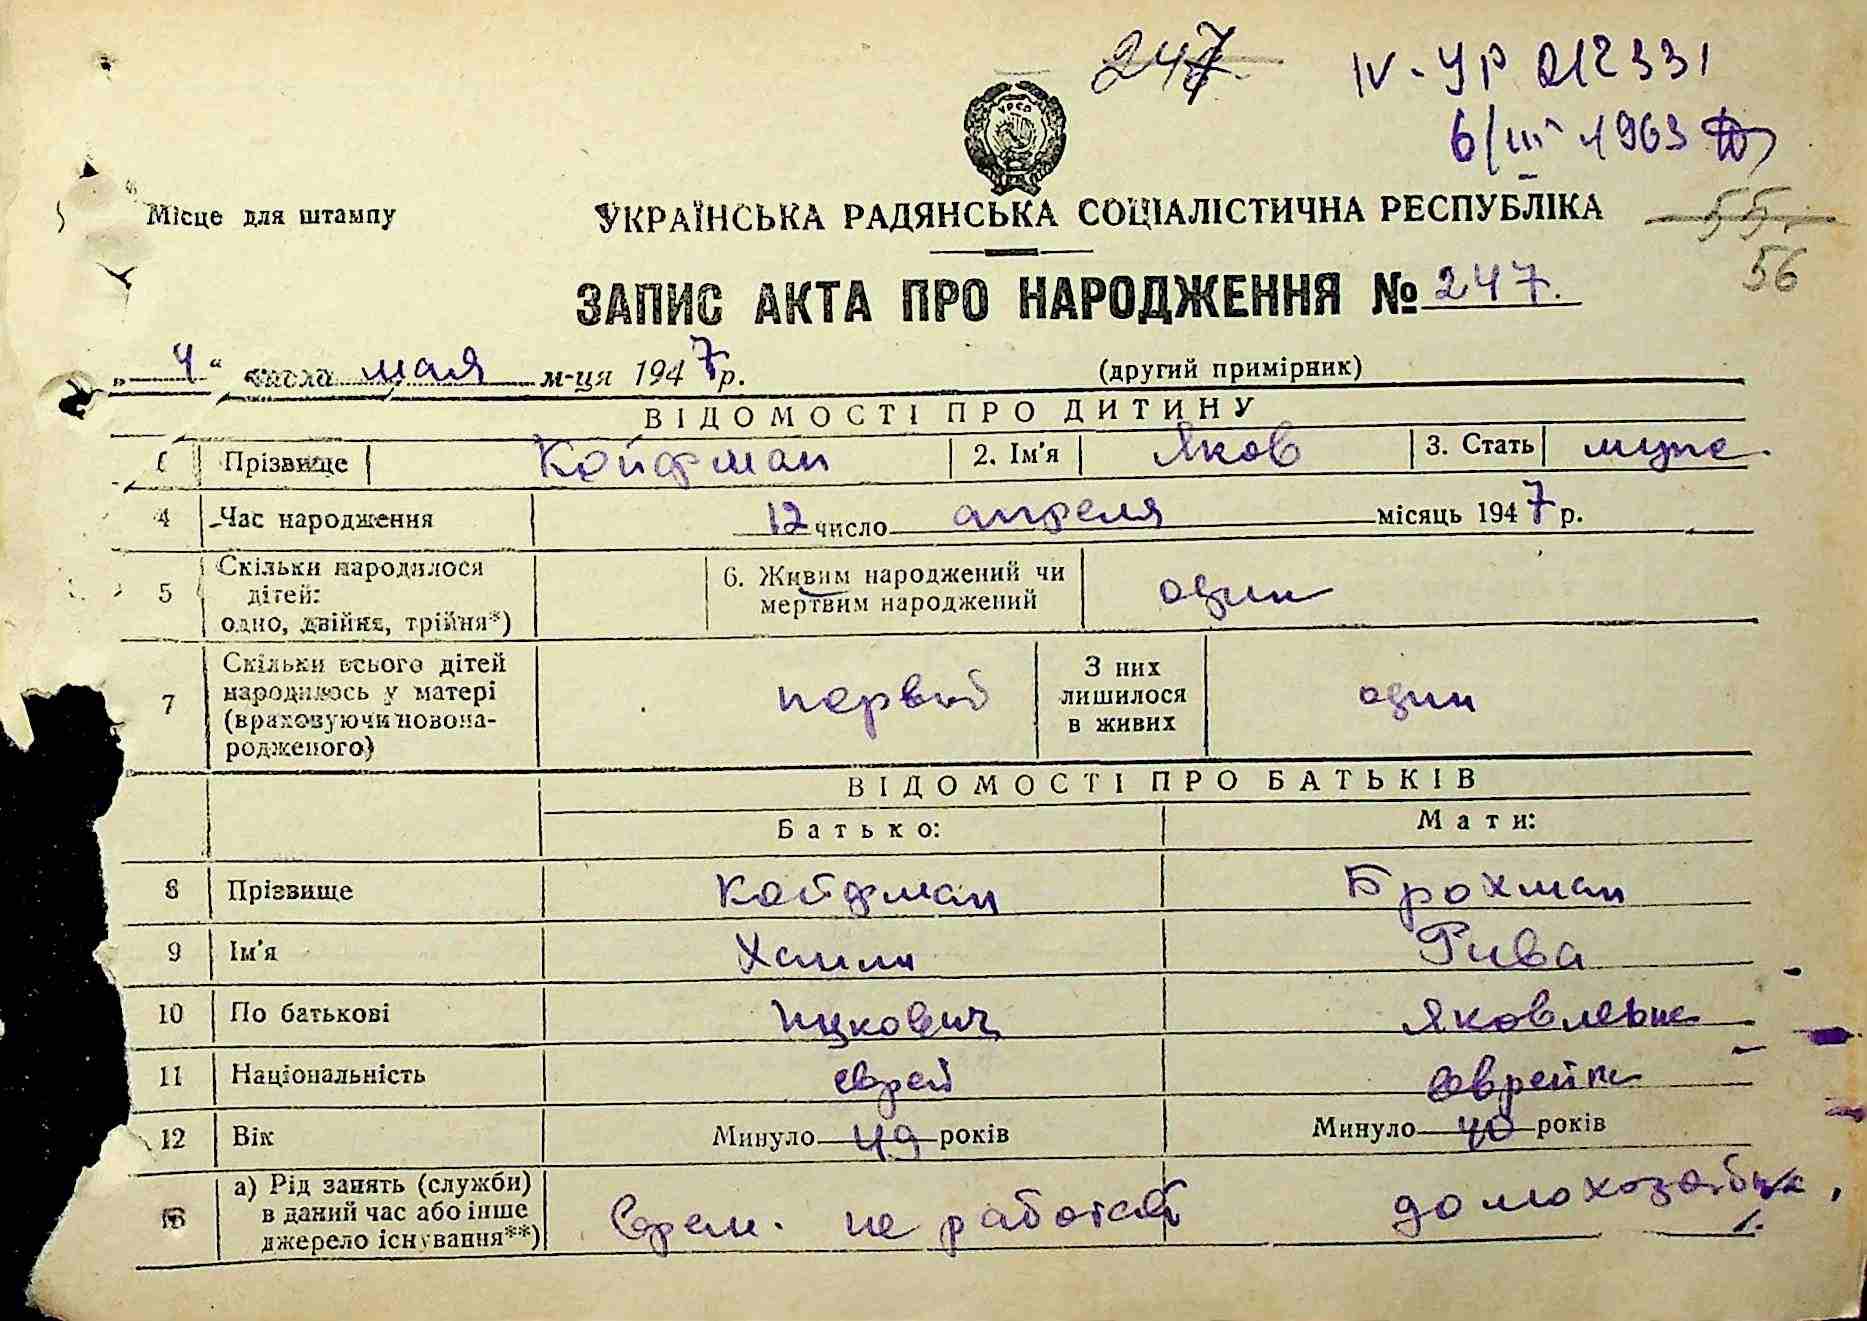 247
IV-УР 012331
6/III 1963
УРСР
Місце для штампу
УКРАЇНСЬКА РАДЯНСЬКА СОЦІАЛІСТИЧНА РЕСПУБЛІКА
55
56
ЗАПИС АКТА ПРО НАРОДЖЕННЯ № 247.
„4“ числа мая м-ця 1947 р.
(другий примірник)
ВІДОМОСТІ ПРО ДИТИНУ
Прізвище Койфман 2. Ім'я Яков 3. Стать муж.
4 Час народження 12 число апреля місяць 1947 р.
5 Скільки народилося дітей: одно, двійня, трійня*) 6. Живим народжений чи мертвим народжений один
7 Скільки всього дітей народилось у матері (враховуючи новонародженого) первый З них лишилося в живих один
ВІДОМОСТІ ПРО БАТЬКІВ
Батько: Мати:
8 Прізвище Койфман Брохман
9 Ім'я Хаим Рива
10 По батькові Ицкович Яковлевна
11 Національність еврей еврейка
12 Вік Минуло 49 років Минуло 40 років
13 а) Рід занять (служби) в даний час або інше джерело існування**) Врем. не работает домохозяйка,